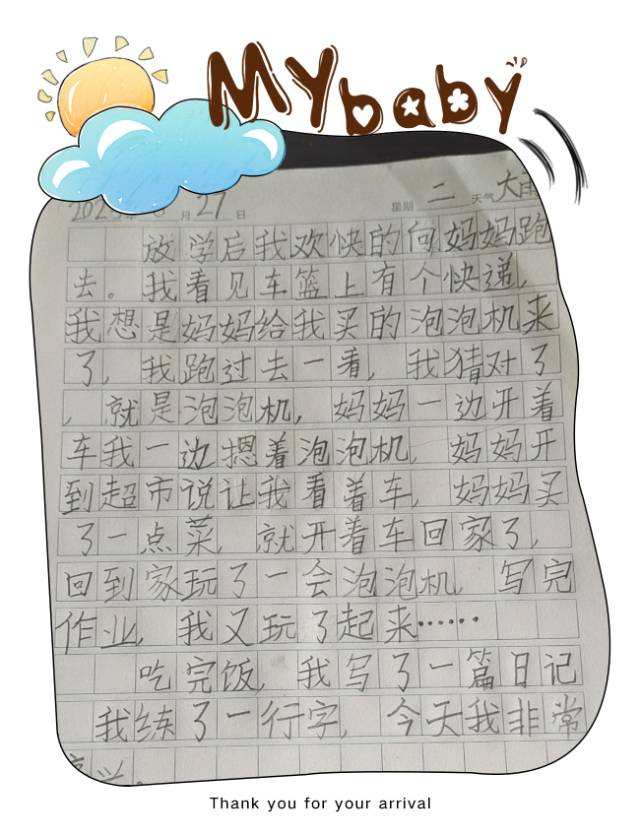 My baby
27日 星期 二 天气 大雨
放学后我欢快的向妈妈跑
去。我看见车篮上有个快递,
我想是妈妈给我买的泡泡机来
了,我跑过去一看,我猜对了
,就是泡泡机,妈妈一边开着
车我一边摁着泡泡机,妈妈开
到超市说让我看着车,妈妈买
了一点菜,就开着车回家了,
回到家玩了一会泡泡机,写完
作业,我又玩了起来……
吃完饭,我写了一篇日记
我练了一行字,今天我非常
Thank you for your arrival